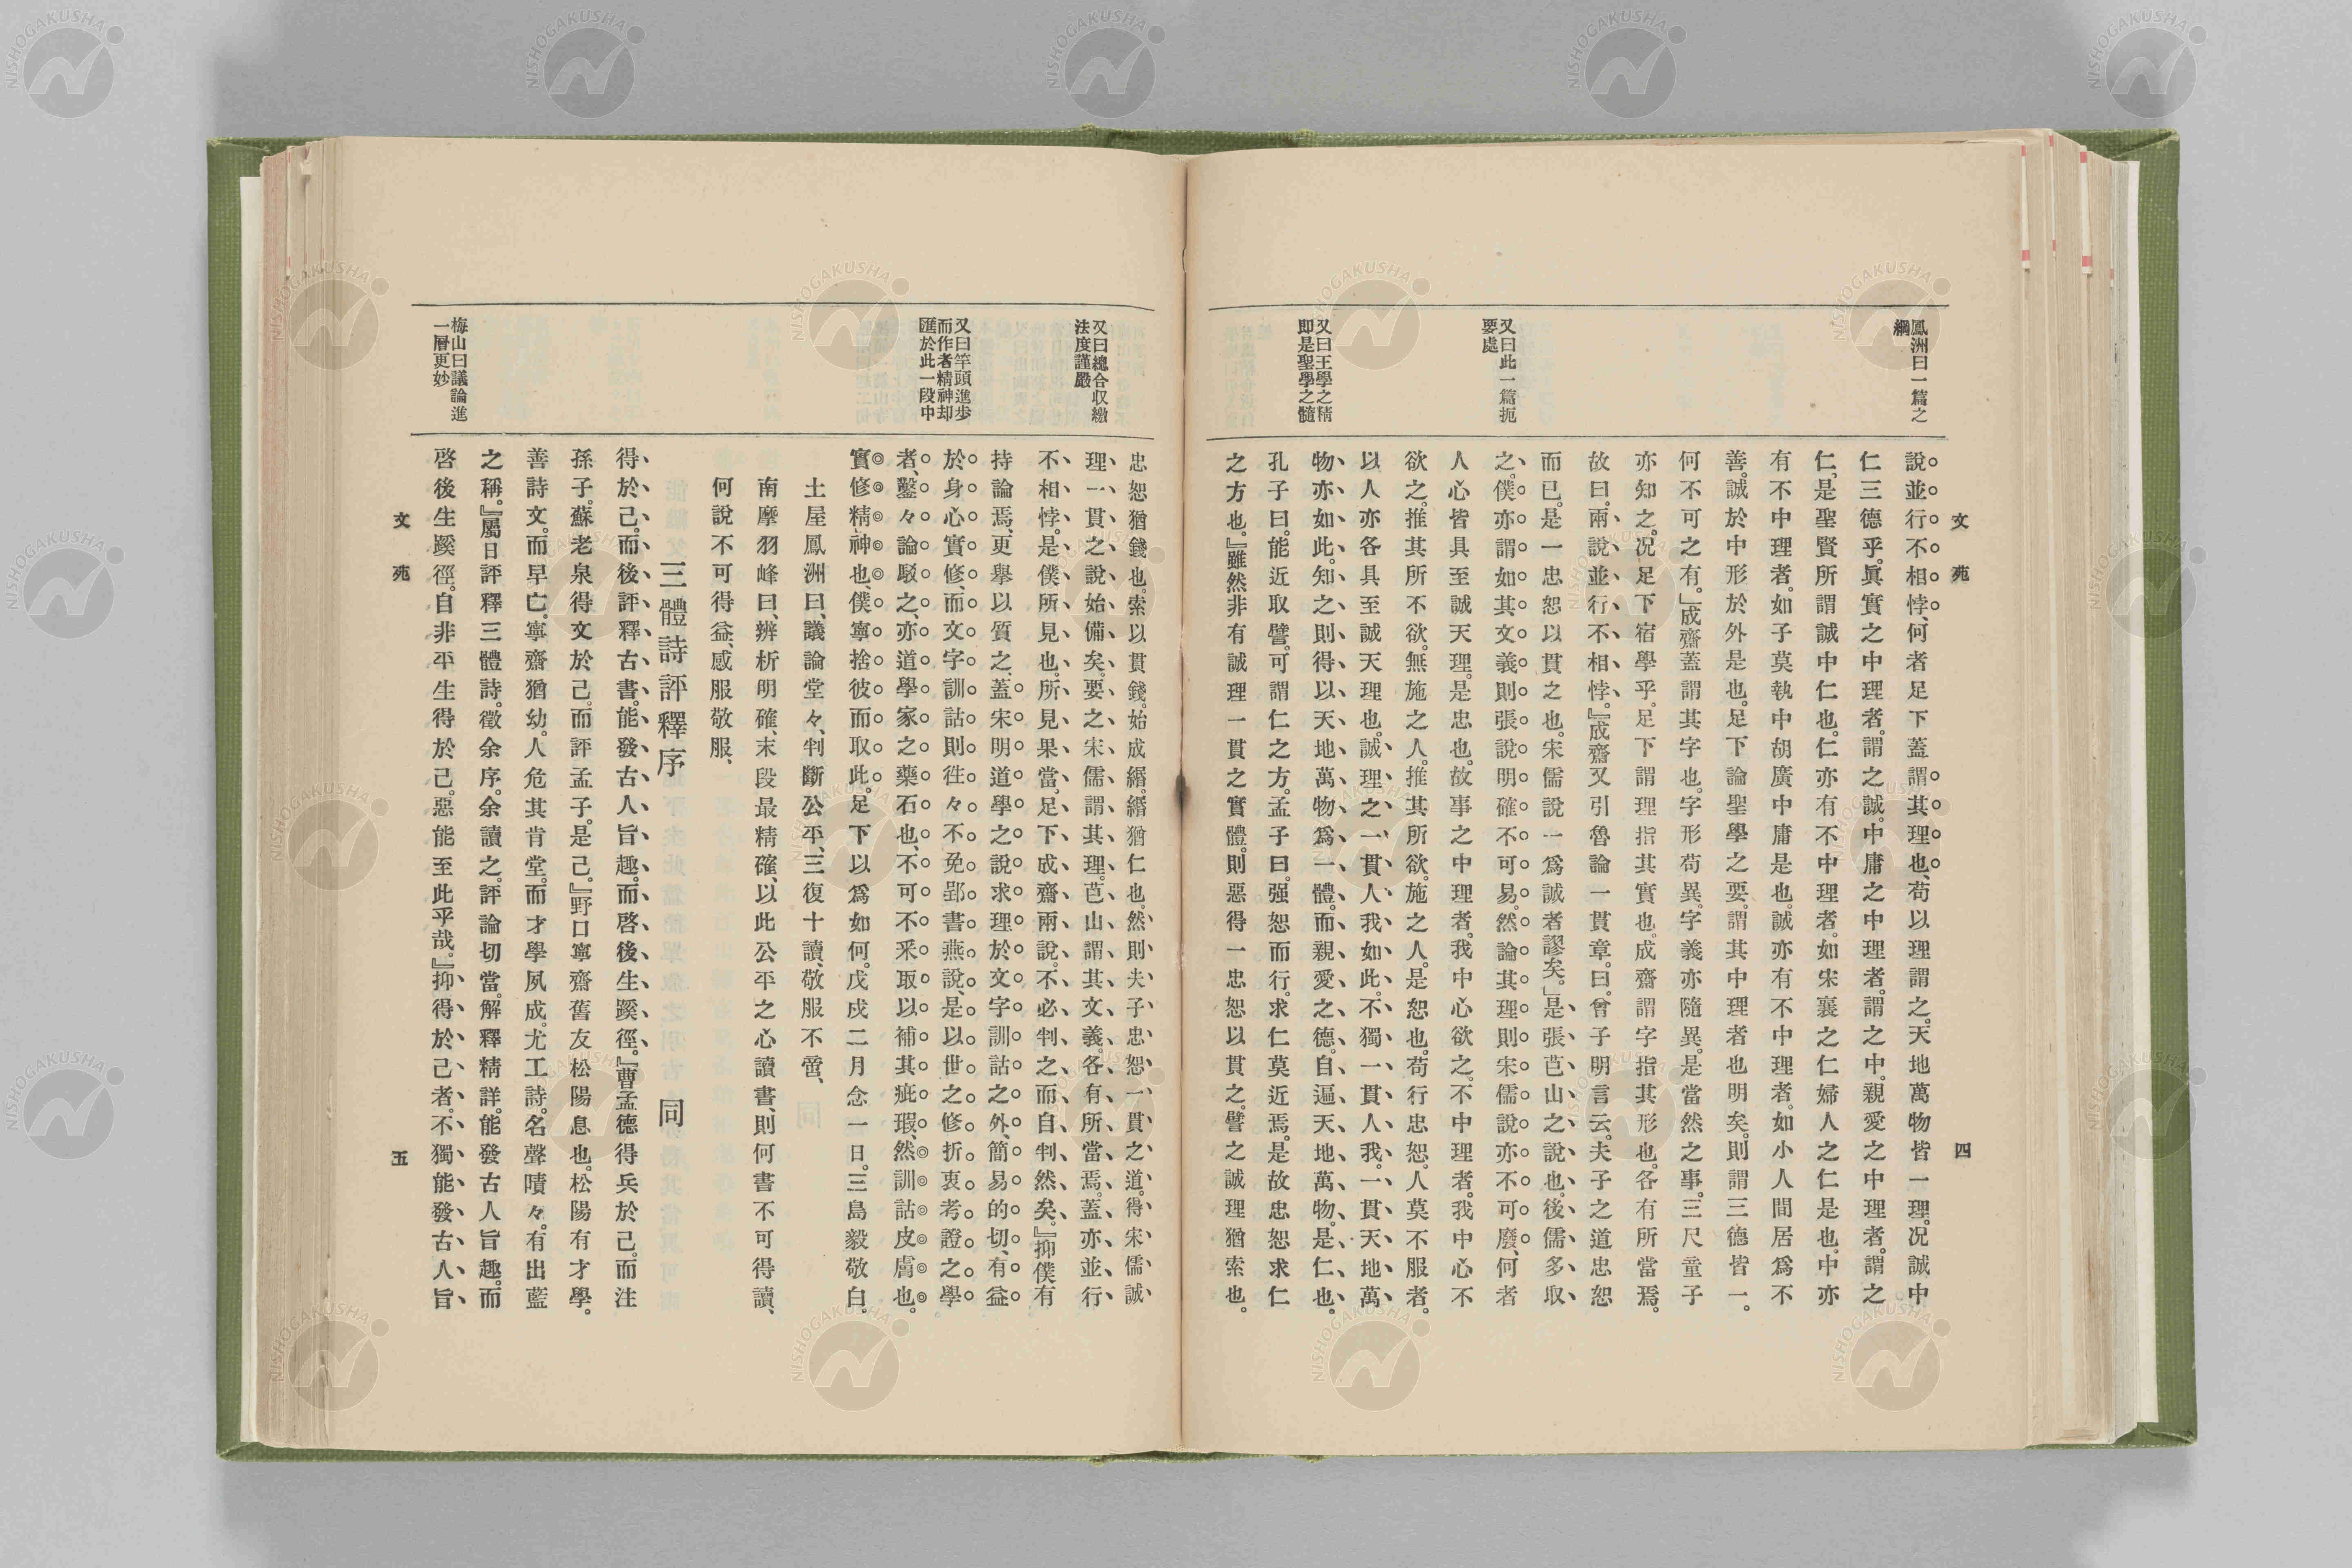 文苑
四
鳳洲曰一篇之
綱
又曰此一篇扼
要處
又曰王學之精
卽是聖學之髓
說並行不相悖、何者足下蓋謂其理也、苟以理謂之。天地萬物皆一理。况誠中
仁三德乎。眞實之中理者。謂之誠。中庸之中理者。謂之中。親愛之中理者。謂之
仁。是聖賢所謂誠中仁也。仁亦有不中理者。如宋襄之仁婦人之仁是也。中亦
有不中理者。如子莫執中胡廣中庸是也。誠亦有不中理者。如小人閒居爲不
善。誠於中形於外是也。足下論聖學之要。謂其中理者也明矣。則謂三德皆一。
何不可之有。』成齋蓋謂其字也。字形苟異。字義亦隨異。是當然之事。三尺童子
亦知之。况足下宿學乎。足下謂理指其實也。成齋謂字指其形也。各有所當焉。
故曰。兩說並行不相悖。』成齋又引魯論一貫章。曰。曾子明言云。夫子之道忠恕
而已。是一忠恕以貫之也。宋儒說一爲誠者謬矣。』是張芭山之說也。後儒多取
之。僕亦謂如其文義則張說明確不可易。然論其理則宋儒說亦不可廢、何者
人心皆具至誠天理。是忠也。故事之中理者。我中心欲之。不中理者。我中心不
欲之。推其所不欲。無施之人。推其所欲。施之人。是恕也。苟行忠恕。人莫不服者。
以人亦各具至誠天理也。誠理之一貫人我如此。不獨一貫人我。一貫天地萬
物亦如此。知之則得以天地萬物爲一體。而親愛之德。自逼天地萬物。是仁也。
孔子曰。能近取譬。可謂仁之方。孟子曰。强恕而行。求仁莫近焉。是故忠恕求仁
之方也。』雖然非有誠理一貫之實體。則惡得一忠恕以貫之。譬之誠理猶索也。
又曰總合収繳
法度謹嚴
又曰竿頭進步
而作者精神却
匯於此一段中
梅山曰議論進
一層更妙
忠恕猶錢也。索以貫錢。始成緡。緡猶仁也。然則夫子忠恕一貫之道。得宋儒誠
理一貫之說始備矣。要之宋儒謂其理。芭山謂其文義。各有所當焉。蓋亦並行
不相悖。是僕所見也。所見果當。足下成齋兩說。不必判之而自判然矣。』抑僕有
持論焉、更擧以質之。蓋宋明道學之說求理於文字訓詁之外、簡易的切、有益
於身心實修、而文字訓詁則徃々不免郢書燕說、是以世之修折衷考證之學
者、鑿々論駁之、亦道學家之藥石也、不可不釆取以補其疵瑕、然訓詁皮膚也。
實修精神也、僕寧捨彼而取此。足下以爲如何。戊戌二月念一日。三島毅敬白。
土屋鳳洲曰、議論堂々、判斷公平、三復十讀、敬服不啻、
南摩羽峰曰、辨析明確、末段最精確、以此公平之心讀書、則何書不可得讀、
何說不可得益、感服敬服、
三體詩評釋序　同
得於己。而後評釋古書。能發古人旨趣。而啓後生蹊徑。』曹孟德得兵於己。而注
孫子。蘇老泉得文於己。而評孟子。是已。』野口寧齋舊友松陽息也。松陽有才學。
善詩文。而早亡。寧齋猶幼。人危其肯堂。而才學夙成。尤工詩。名聲嘖々。有出藍
之稱。』屬日評釋三體詩。徵余序。余讀之。評論切當。解釋精詳。能發古人旨趣。而
啓後生蹊徑。自非平生得於己。惡能至此乎哉。』抑得於己者。不獨能發古人旨
文苑
五
NISHOGAKUSHA